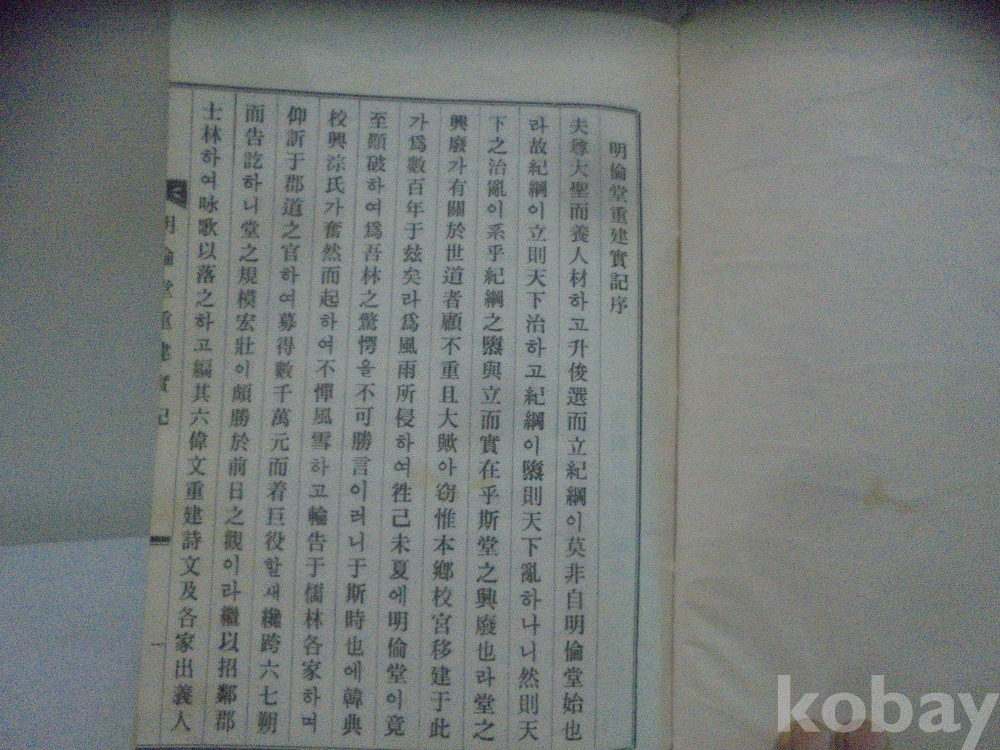 明倫堂重建實記序
夫尊大聖而養人材하고升俊選而立紀綱이莫非自明倫堂始也
라故紀綱이立則天下治하고紀綱이隳則天下亂하나니然則天
下之治亂이系乎紀綱之隳與立而實在乎斯堂之興廢也라堂之
興廢가有關於世道者顧不重且大歟아窃惟本鄉校宮移建于此
가爲數百年于玆矣라爲風雨所侵하여徃己未夏에明倫堂이竟
至顚破하여爲吾林之驚愕을不可勝言이러니于斯時也에韓典
校興淙氏가奮然而起하여不憚風雪하고輪告于儒林各家하며
仰訢于郡道之官하여募得數千萬元而着巨役할새纔跨六七朔
而告訖하니堂之規模宏壯이頗勝於前日之觀이라繼以招鄰郡
士林하여咏歌以落之하고編其六偉文重建詩文及各家出義人
明倫堂重建實記
一
kobay